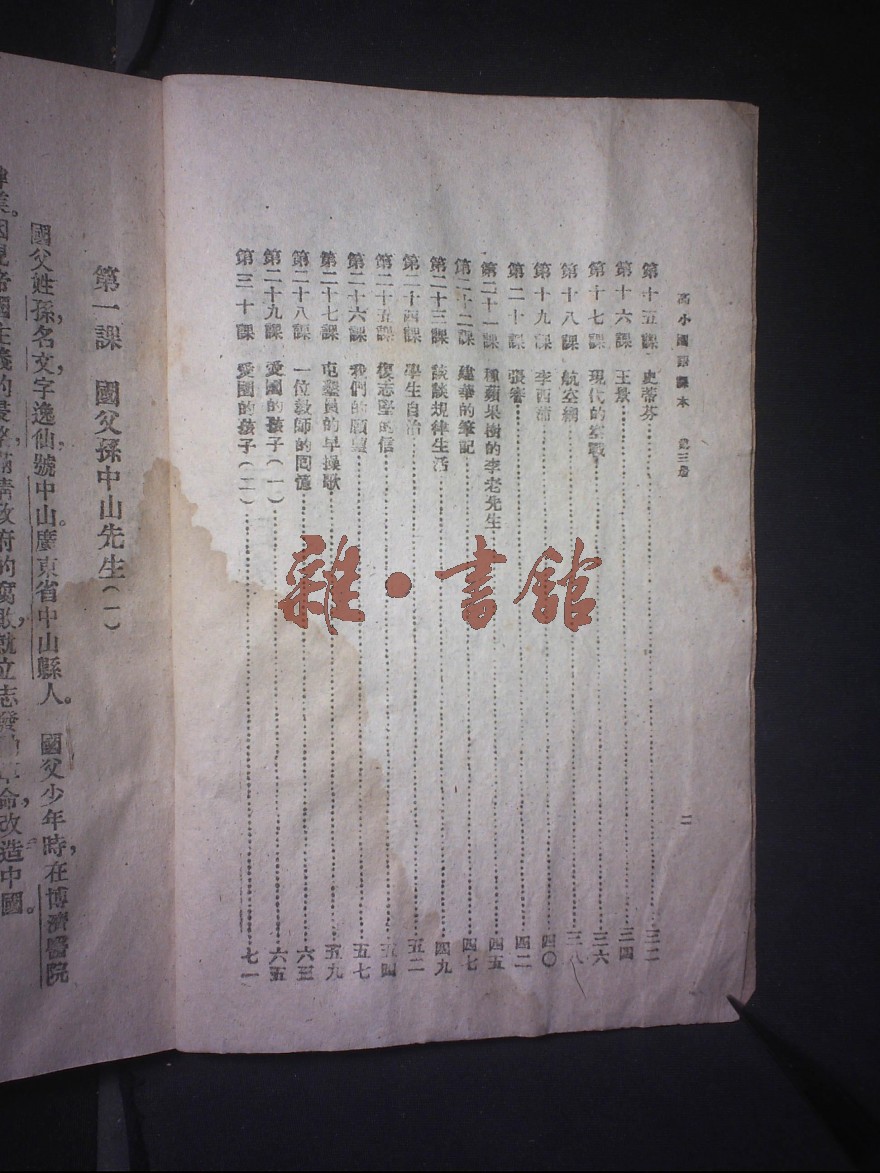 高小國語課本 第三册
第十五課 史蒂芬 三二
第十六課 王景 三四
第十七課 現代的空戰 三六
第十八課 航空網 三八
第十九課 李西浦 四〇
第二十課 張騫 四二
第二十一課 種蘋果樹的李老先生 四五
第二十二課 建華的筆記 四七
第二十三課 談談規律生活 四九
第二十四課 學生自治 五二
第二十五課 復志堅的信 五四
第二十六課 我們的願望 五七
第二十七課 屯墾員的早操歌 五九
第二十八課 一位教師的回憶 六三
第二十九課 愛國的孩子(一) 六五
第三十課 愛國的孩子(二) 七一
二
雜·書館
第一課 國父孫中山先生(一)
國父姓孫,名文,字逸仙,號中山。廣東省中山縣人。國父少年時,在博濟醫院
因見帝國主義的侵略,滿清政府的腐敗,就立志發動革命,改造中國。